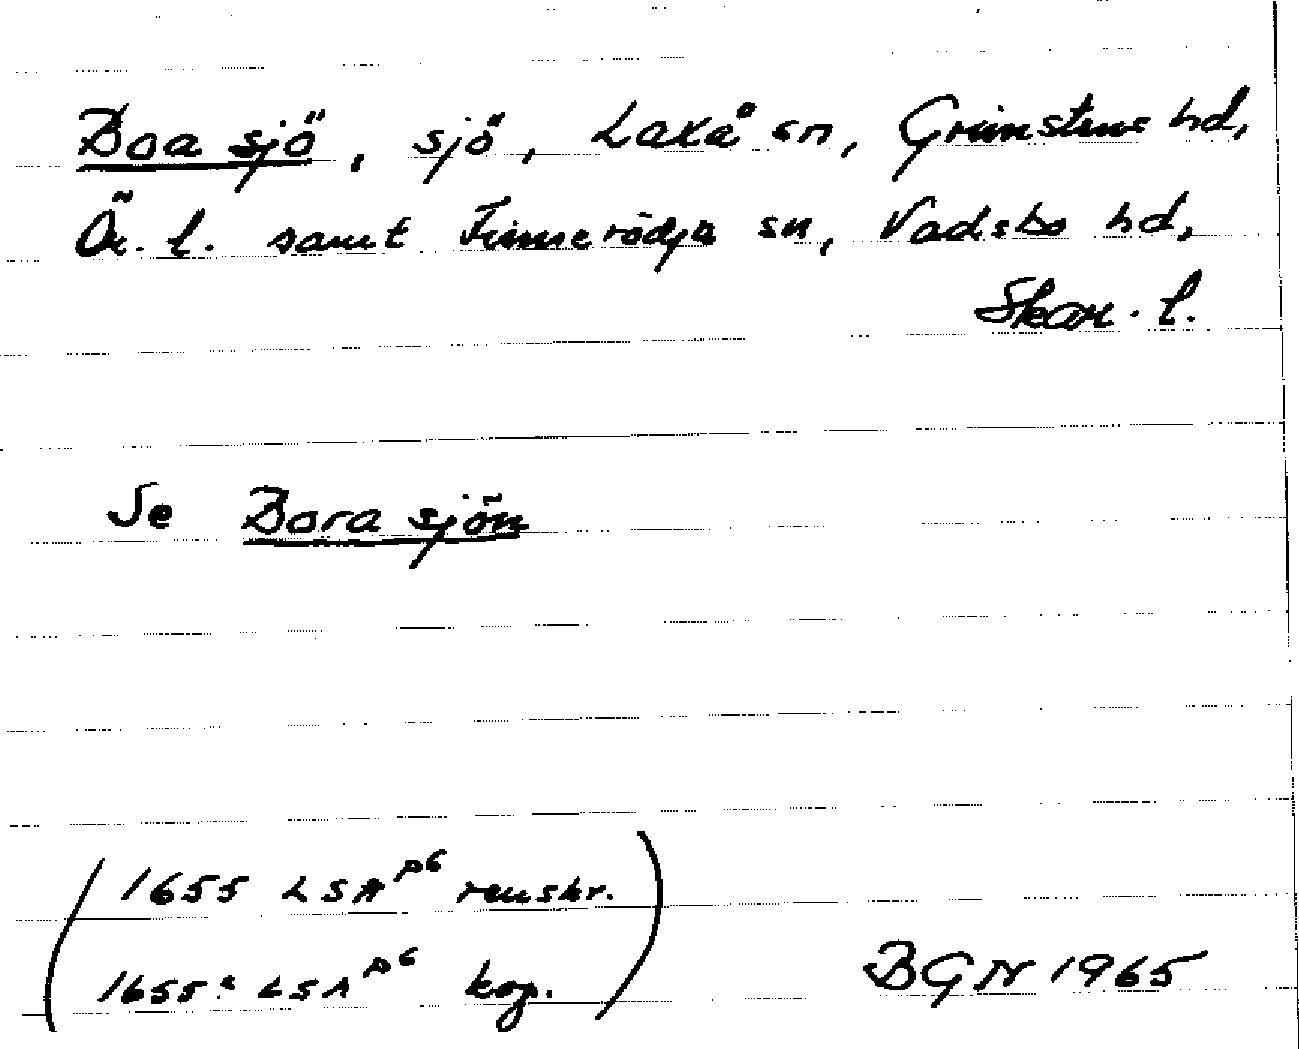 Boa sjö, sjö, Laxå sn, Grimstens hd,
Ör. l. samt Finnerödja sn, Vadsbo hd,
Skar. l.
Se Bora sjön
(1655 LSA P6 renskr.
1655: LSA P6 kop.)
BGN 1965